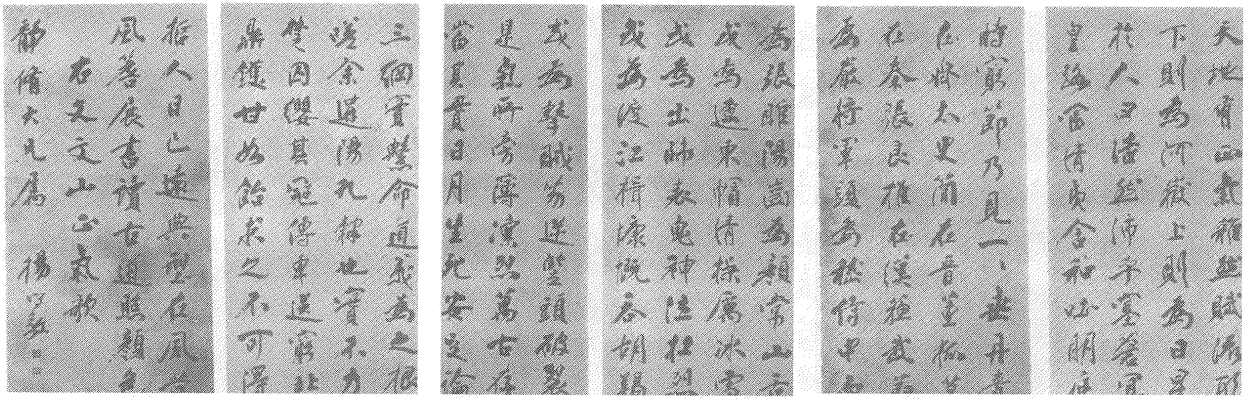 天地有正氣雜然賦流形
下則為河嶽上則為日星
於人曰浩然沛乎塞蒼冥
皇路當清夷含和吐明庭
時窮節乃見一、垂丹青
在齊太史簡在晉董狐筆
在秦張良椎在漢蘇武節
為嚴將軍頭為嵇侍中血
為張睢陽齒為顏常山舌
或為遼東帽清操厲冰雪
或為出師表鬼神泣壯烈
或為渡江楫慷慨吞胡羯
或為擊賊笏逆豎頭破裂
是氣所旁薄凜烈萬古存
當其貫日月生死安足論
三綱實繫命道義為之根
嗟余遘陽九隸也實不力
楚囚纓其冠傳車送窮北
鼎鑊甘如飴求之不可得
哲人日已遠典型在夙昔
風簷展書讀古道照顏色
右文文山正氣歌
靜脩大兄屬 楊守敬